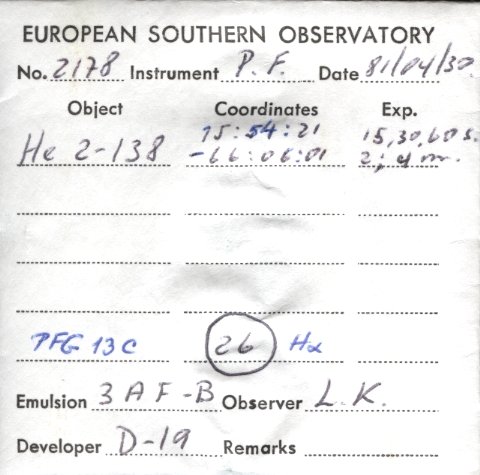 EUROPEAN SOUTHERN OBSERVATORY
No. 2178 Instrument P.F. Date 81/04/30
Object Coordinates Exp.
15:54:21 15,30,60 s.
He 2-138 -66:06:01 2; 4 m.
PFG 13C 26 Hα
Emulsion 3AF-B Observer L.K.
Developer D-19 Remarks